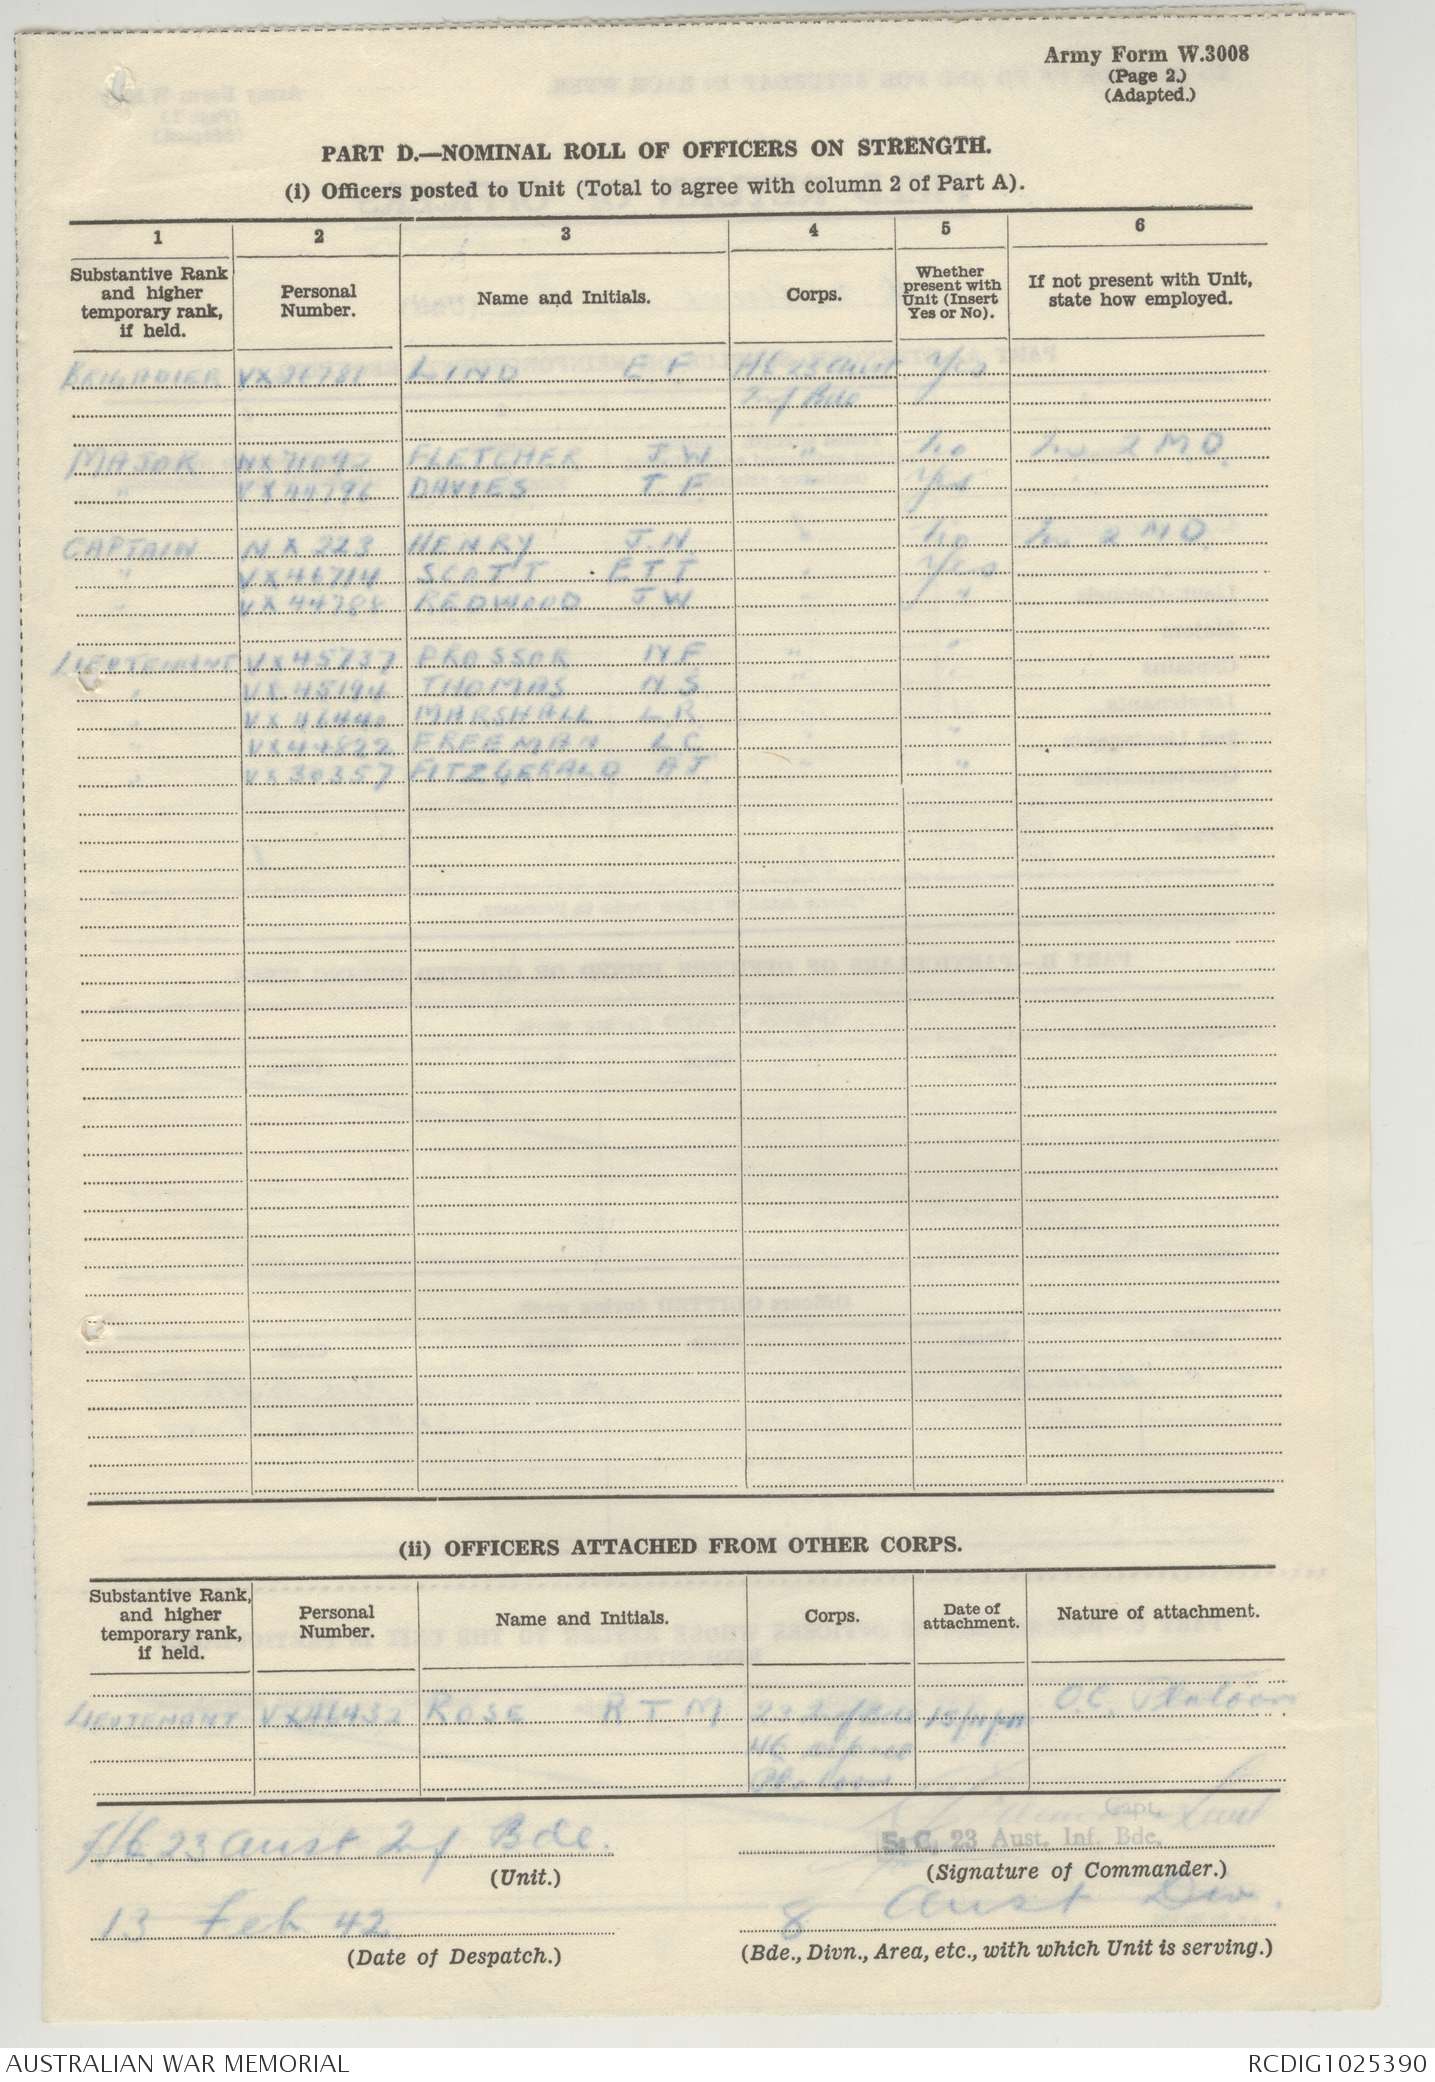 Army Form W.3008
(Page 2.)
(Adapted.)
PART D.—NOMINAL ROLL OF OFFICERS ON STRENGTH.
(i) Officers posted to Unit (Total to agree with column 2 of Part A).
1 2 3 4 5 6
Substantive Rank and higher temporary rank, if held.
Personal Number.
Name and Initials.
Corps.
Whether present with Unit (Insert Yes or No).
If not present with Unit, state how employed.
BRIGADIER LIND E F HQ 23 Aust Yes
Inf Bde
MAJOR NX71042 FLETCHER J.W. " No 2 M.D.
" VX44796 DAVIES T F " Yes
CAPTAIN NX 223 HENRY J.N. " No 2 M D
" VX46714 SCOTT E T T " Yes
" VX44788 REDWOOD J W " "
LIEUTENANT VX45737 PROSSOR N F " "
" VX45194 THOMAS N S " "
" VX46440 MARSHALL L R " "
" VX44822 FREEMAN L C " "
" VX30357 FITZGERALD A J " "
(ii) OFFICERS ATTACHED FROM OTHER CORPS.
Substantive Rank, and higher temporary rank, if held.
Personal Number.
Name and Initials.
Corps.
Date of attachment.
Nature of attachment.
LIEUTENANT VX46432 ROSE R T M 23 Inf Bde O.C. Platoon
Platoon
HQ 23 Aust Inf Bde.
(Unit.)
Capt.
S. C. 23 Aust. Inf. Bde.
(Signature of Commander.)
13 Feb 42
(Date of Despatch.)
8 Aust Div.
(Bde., Divn., Area, etc., with which Unit is serving.)
AUSTRALIAN WAR MEMORIAL
RCDIG1025390